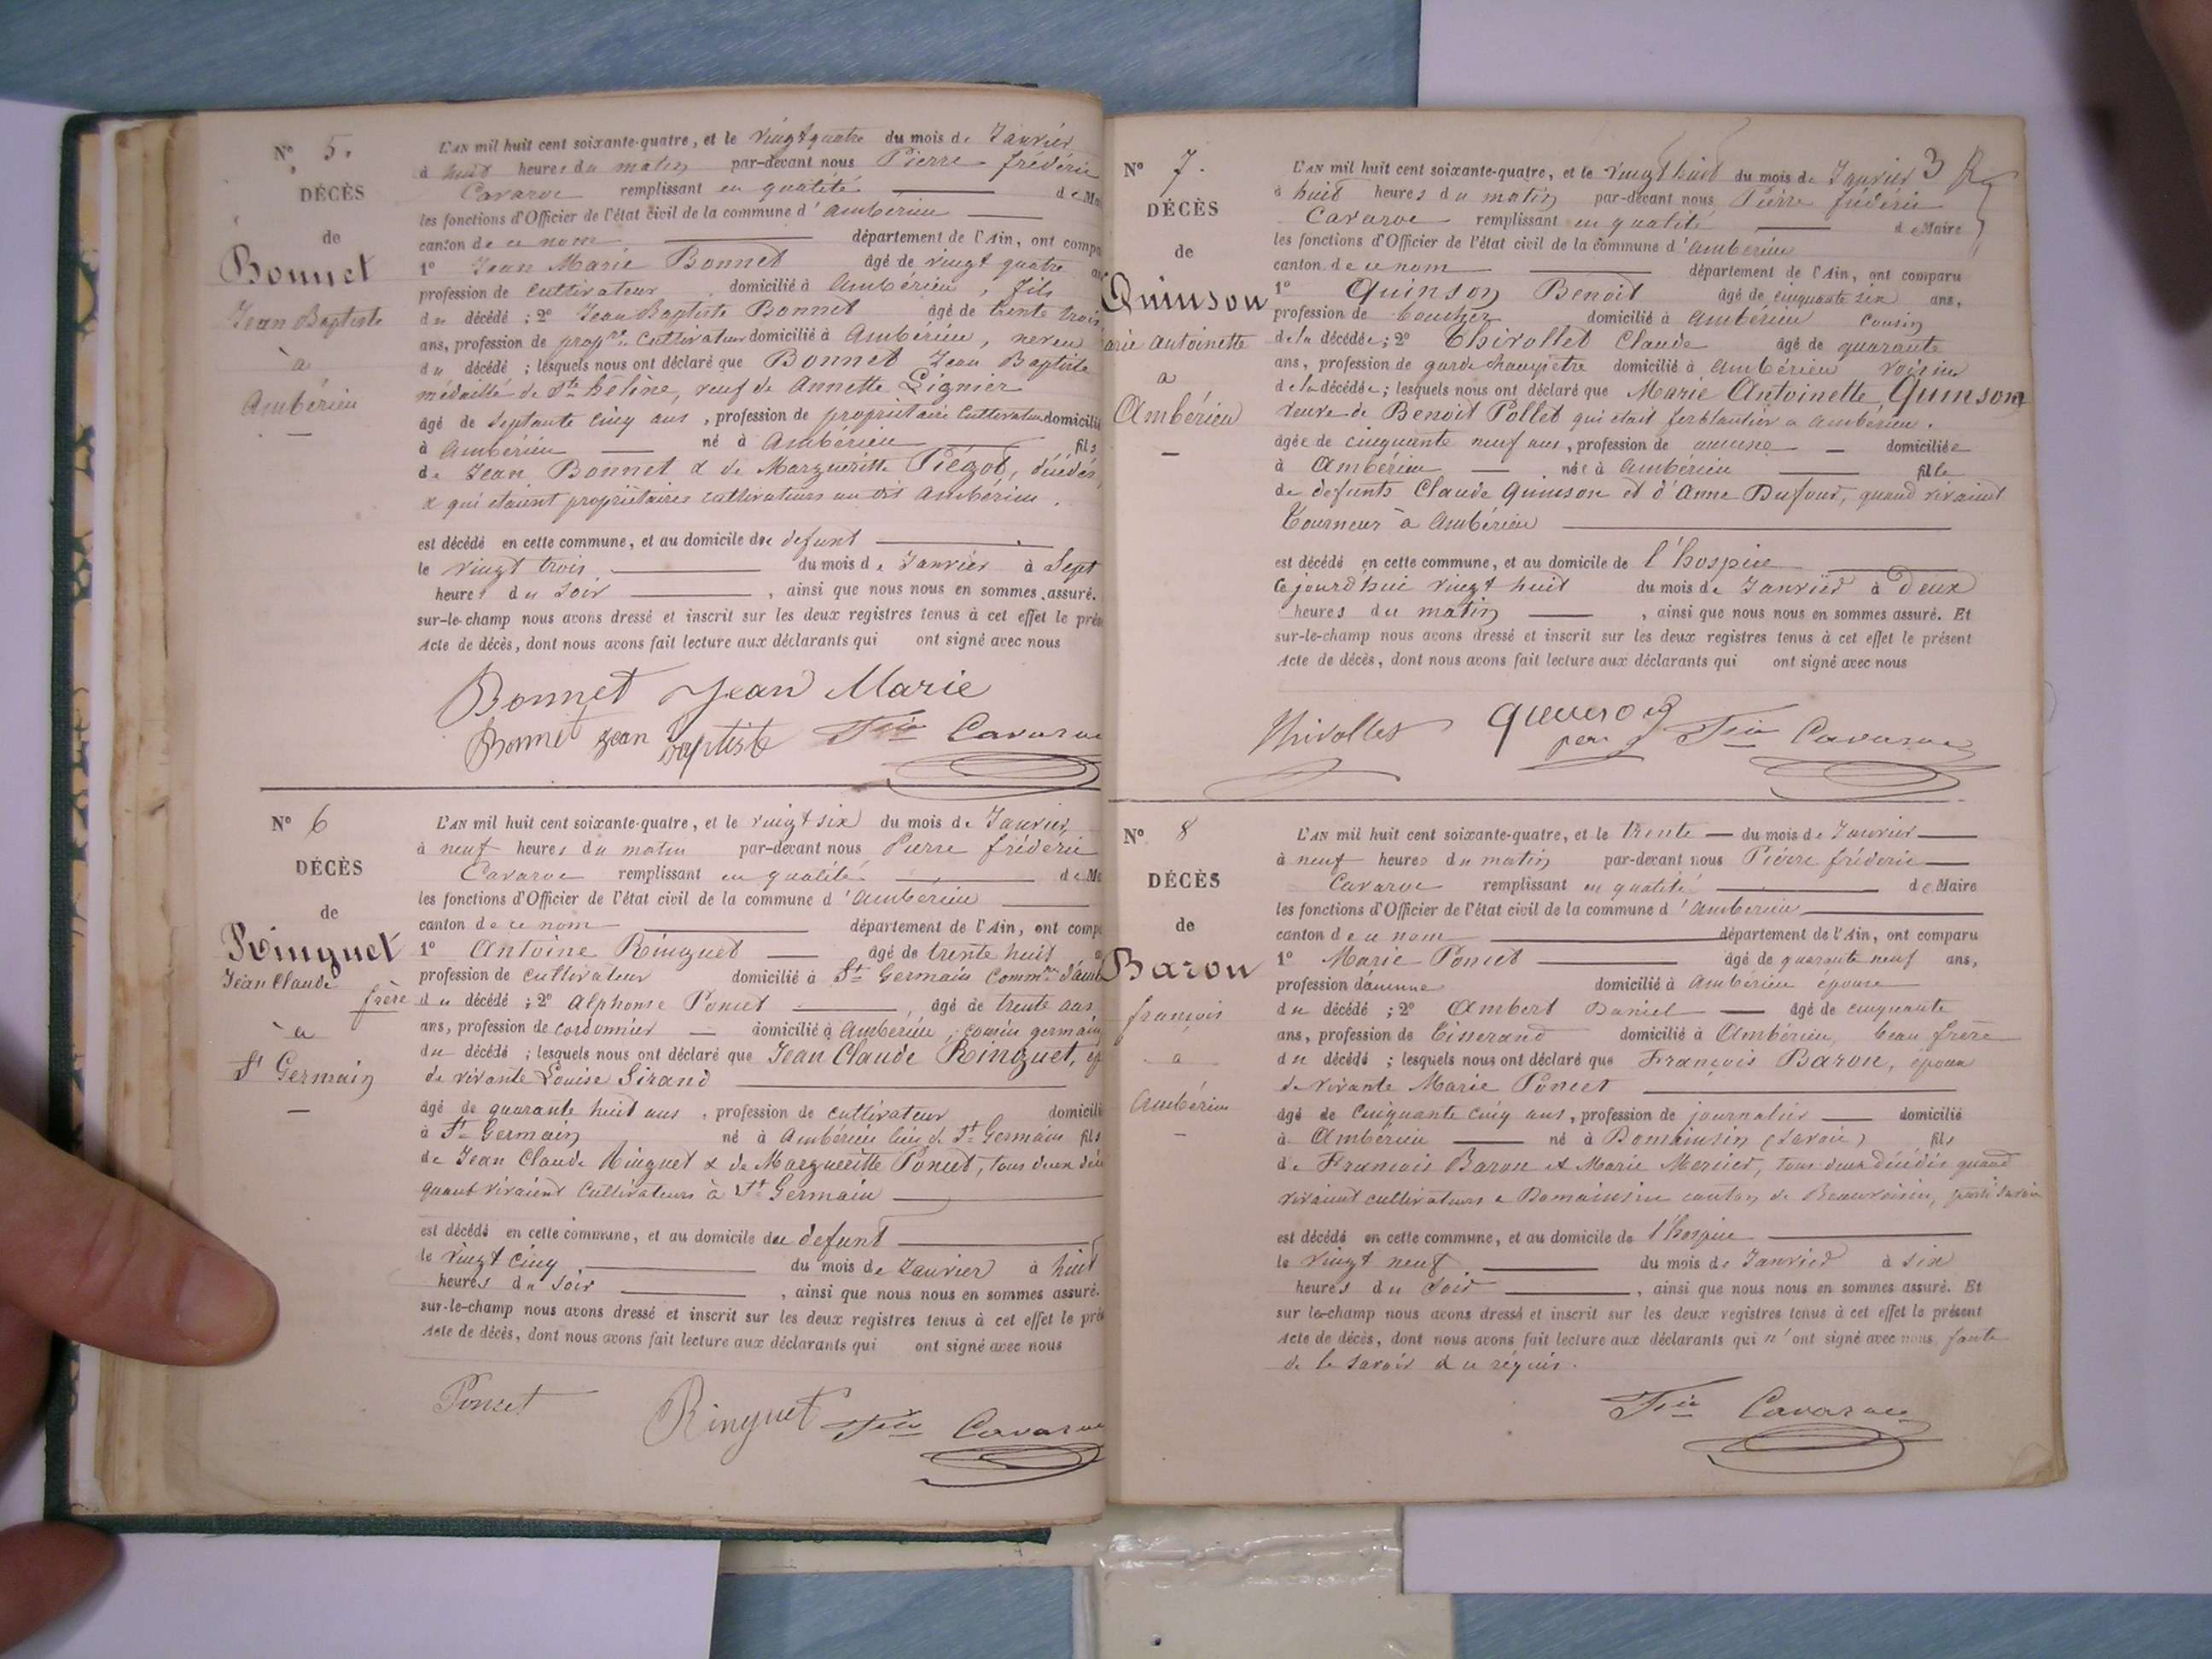 N° 5.
DÉCÈS
de
Bonnet
Jean Baptiste
à
Ambérieu
L'AN mil huit cent soixante-quatre, et le vingt quatre du mois de Janvier
à huit heures du matin par-devant nous Pierre fréderic
Cavaroc remplissant en qualité de Ma
les fonctions d'Officier de l'état civil de la commune d'ambérieu
canton de ce nom département de l'Ain, ont compa
1° Jean Marie Bonnet âgé de vingt quatre an
profession de cultivateur domicilié à Ambérieu, fils
du décédé ; 2° Jean Baptiste Bonnet âgé de trente trois
ans, profession de propre cultivateur domicilié à Ambérieu, neveu
du décédé ; lesquels nous ont déclaré que Bonnet Jean Baptiste
médaillé de Ste hélène, veuf de Annette Lignier
âgé de septante cinq ans, profession de propriétaire cultivateur domicilié
à Ambérieu né à Ambérieu fils
de Jean Bonnet & de Margueritte Piézot, décédés,
& qui étaient propriétaires cultivateurs au dit Ambérieu.
est décédé en cette commune, et au domicile du defunt
le vingt trois du mois de Janvier à Sept
heures du soir, ainsi que nous nous en sommes assuré.
sur-le-champ nous avons dressé et inscrit sur les deux registres tenus à cet effet le prés
Acte de décès, dont nous avons fait lecture aux déclarants qui ont signé avec nous
Bonnet Jean Marie
Bonnet Jean baptiste Fric Cavaroc
N° 6
DÉCÈS
de
Ringuet
Jean Claude
frère
à
St Germain
L'AN mil huit cent soixante-quatre, et le vingt six du mois de Janvier
à neuf heures du matin par-devant nous Pierre fréderic
Cavaroc remplissant en qualité de Ma
les fonctions d'Officier de l'état civil de la commune d'ambérieu
canton de ce nom département de l'Ain, ont comp
1° Antoine Ringuet âgé de trente huit
profession de cultivateur domicilié à St Germain Commne d'amb
du décédé ; 2° Alphonse Poncet, âgé de trente ans
ans, profession de cordonnier domicilié à Ambérieu, cousin germain
du décédé ; lesquels nous ont déclaré que Jean Claude Ringuet, ép
de vivante Louise Sirand
âgé de quarante huit ans, profession de cultivateur domicili
à St Germain né à Ambérieu lieu de St Germain fils
de Jean Claude Ringuet & de Margueritte Poncet, tous deux déc
quant vivaient cultivateurs à St Germain
est décédé en cette commune, et au domicile du defunt
le vingt cinq du mois de Janvier à huit
heures du soir, ainsi que nous nous en sommes assuré.
sur-le-champ nous avons dressé et inscrit sur les deux registres tenus à cet effet le prés
Acte de décès, dont nous avons fait lecture aux déclarants qui ont signé avec nous
Poncet Ringuet Fric Cavaroc
3
N° 7.
DÉCÈS
de
Quinson
arie Antoinette
a
Ambérieu
L'AN mil huit cent soixante-quatre, et le vingt huit du mois de Janvier
à huit heures du matin par-devant nous Pierre fréderic
Cavaroc remplissant en qualité de Maire
les fonctions d'Officier de l'état civil de la commune d'ambérieu
canton de ce nom département de l'Ain, ont comparu
1° Quinson Benoit âgé de cinquante six ans,
profession de boucher domicilié à Ambérieu cousin
de la décédée ; 2° Thivollet Claude âgé de quarante
ans, profession de garde champêtre domicilié à Ambérieu voisin
de la décédée ; lesquels nous ont déclaré que Marie Antoinette Quinson
veuve de Benoit Pollet qui était ferblantier à Ambérieu.
âgée de cinquante neuf ans, profession de aucune domiciliée
à Ambérieu née à Ambérieu fille
de defunts Claude Quinson et d'Anne Dufour, quand vivaient
Tourneur à Ambérieu
est décédé en cette commune, et au domicile de l'hospice
Ce jourd'hui vingt huit du mois de Janvier à Deux
heures du matin, ainsi que nous nous en sommes assuré. Et
sur-le-champ nous avons dressé et inscrit sur les deux registres tenus à cet effet le présent
Acte de décès, dont nous avons fait lecture aux déclarants qui ont signé avec nous
Thivollet Fric Cavaroc
N° 8
DÉCÈS
de
Baron
françois
a
Ambérieu
L'AN mil huit cent soixante-quatre, et le trente du mois de Janvier
à neuf heures du matin par-devant nous Pierre fréderic
Cavaroc remplissant en qualité de Maire
les fonctions d'Officier de l'état civil de la commune d'ambérieu
canton de ce nom département de l'Ain, ont comparu
1° Marie Poncet âgé de quarante neuf ans,
profession d'aucune domicilié à Ambérieu épouse
du décédé ; 2° Ambert Daniel âgé de cinquante
ans, profession de Tisserand domicilié à Ambérieu, beau frère
du décédé ; lesquels nous ont déclaré que François Baron, époux
de vivante Marie Poncet
âgé de cinquante cinq ans, profession de journalier domicilié
à Ambérieu né à Domainsin (Savoie) fils
de François Baron et Marie Mercier, tous deux décédés quand
vivaient cultivateurs a Domainsin canton de Beauvoisin,
est décédé en cette commune, et au domicile de l'hospice
le vingt neuf du mois de Janvier à six
heures du soir, ainsi que nous nous en sommes assuré. Et
sur le-champ nous avons dressé et inscrit sur les deux registres tenus à cet effet le présent
Acte de décès, dont nous avons fait lecture aux déclarants qui n'ont signé avec nous, faute
de le savoir de ce réquis.
Fric Cavaroc